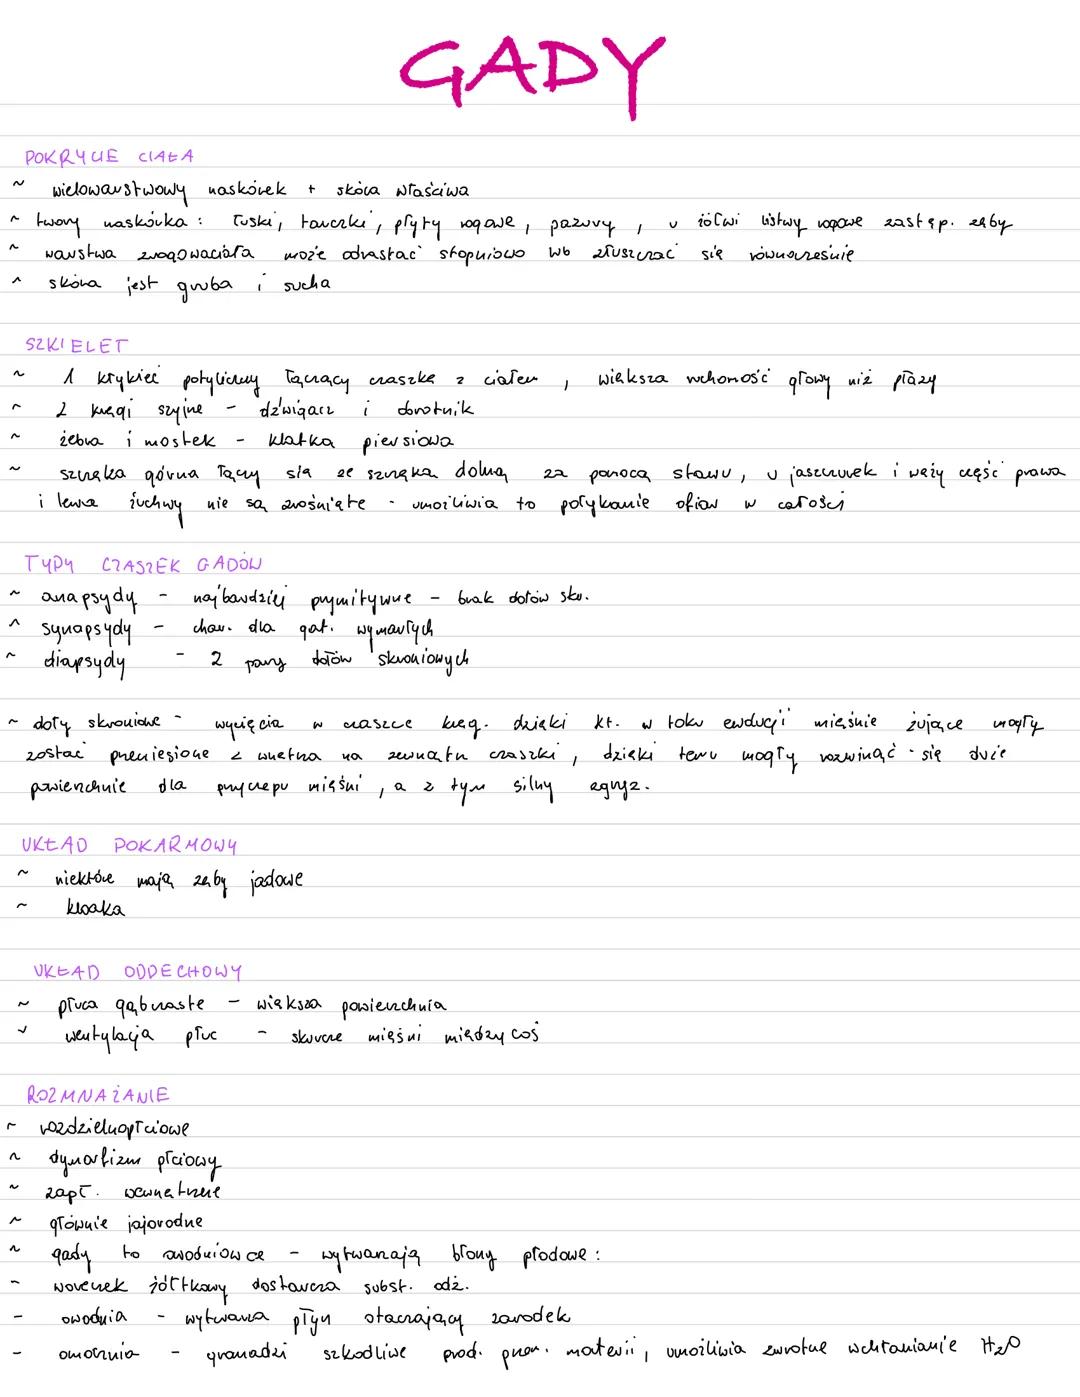 GADY
POKRYCIE CIAŁA
~ wielowarstwowy naskórek + skóra właściwa
~ twory naskórka : łuski, tarczki, płyty rogowe, pazury, u żółwi listwy rogowe zastęp. zęby
~ warstwa zrogowaciała może odrastać stopniowo lub złuszczać się równocześnie
~ skóra jest gruba i sucha
SZKIELET
~ 1 kłykieć potyliczny łączący czaszkę z ciałem, większa ruchomość głowy niż płazy
~ 2 kręgi szyjne - dźwigacz i obrotnik
~ żebra i mostek - klatka piersiowa
~ szczęka górna łączy się ze szczęką dolną za pomocą stawu, u jaszczurek i węży część prawa
i lewa żuchwy nie są zrośnięte - umożliwia to połykanie ofiar w całości
TYPY CZASZEK GADÓW
~ anapsydy - najbardziej prymitywne - brak dołów skr.
~ synapsydy - char. dla gat. wymarłych
~ diapsydy - 2 pary dołów skroniowych
~ doły skroniowe - wycięcia w czaszce kręg. dzięki kt. w toku ewolucji mięśnie żujące mogły
zostać przeniesione z wnętrza na zewnątrz czaszki, dzięki temu mogły rozwinąć się duże
powierzchnie dla przyczepu mięśni, a z tym silny zgryz.
UKŁAD POKARMOWY
~ niektóre mają zęby jadowe
~ kloaka
UKŁAD ODDECHOWY
~ płuca gąbczaste - większa powierzchnia
~ wentylacja płuc - skurcze mięśni międzycoś
ROZMNAŻANIE
~ rozdzielnopłciowe
~ dymorfizm płciowy
~ zapł. wewnętrzne
~ głównie jajorodne
~ gady to owodniowce - wytwarzają błony płodowe :
- woreczek żółtkowy dostarcza subst. odż.
- owodnia - wytwarza płyn otaczający zarodek
- omocznia - gromadzi szkodliwe prod. przem. materii, umożliwia zwrotne wchłanianie H2O